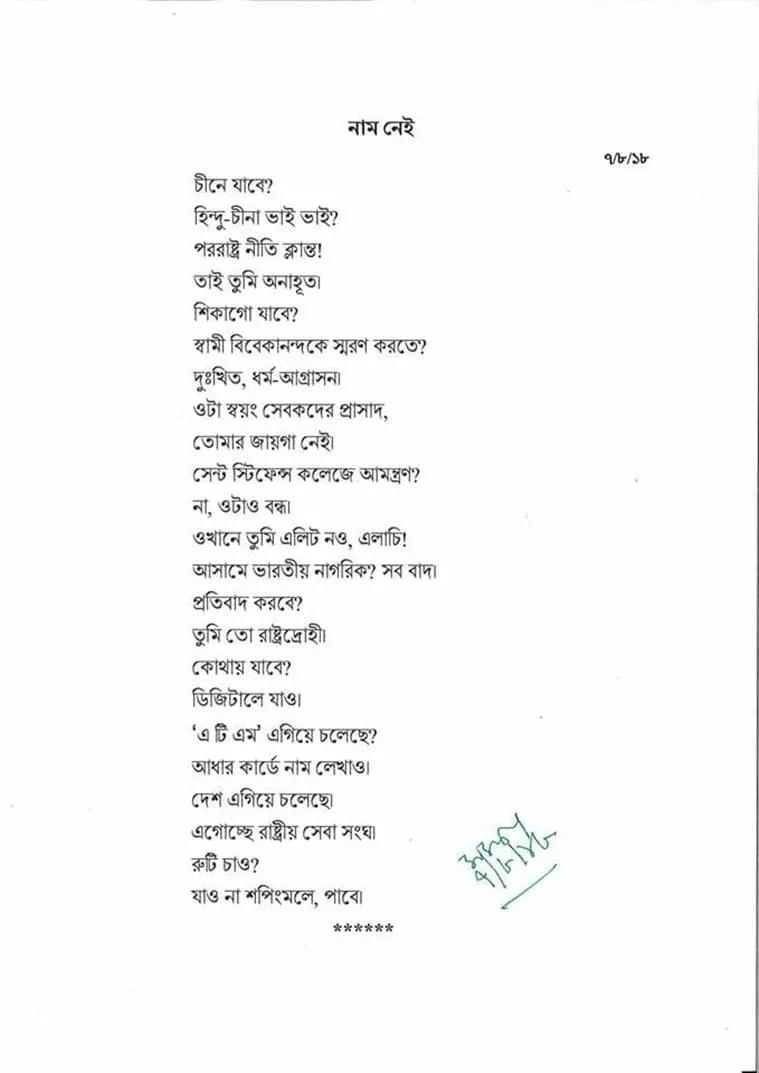 নাম নেই
৭/৮/১৮
চীনে যাবে?
হিন্দু-চীনা ভাই ভাই?
পররাষ্ট্র নীতি ক্লান্ত!
তাই তুমি অনাহূত।
শিকাগো যাবে?
স্বামী বিবেকানন্দকে স্মরণ করতে?
দুঃখিত, ধর্ম-আগ্রাসন।
ওটা স্বয়ং সেবকদের প্রাসাদ,
তোমার জায়গা নেই।
সেন্ট স্টিফেন্স কলেজে আমন্ত্রণ?
না, ওটাও বন্ধ।
ওখানে তুমি এলিট নও, এলাচি!
আসামে ভারতীয় নাগরিক? সব বাদ।
প্রতিবাদ করবে?
তুমি তো রাষ্ট্রদ্রোহী।
কোথায় যাবে?
ডিজিটালে যাও।
‘এ টি এম’ এগিয়ে চলেছে?
আধার কার্ডে নাম লেখাও।
দেশ এগিয়ে চলেছে।
এগোচ্ছে রাষ্ট্রীয় সেবা সংঘ।
রুটি চাও?
যাও না শপিংমলে, পাবে।
******
৭/৮/১৮